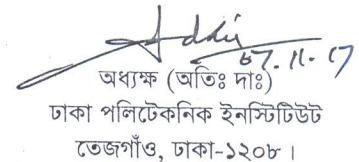 07.11.17
অধ্যক্ষ (অতিঃ দাঃ)
ঢাকা পলিটেকনিক ইনস্টিটিউট
তেজগাঁও, ঢাকা-১২০৮।